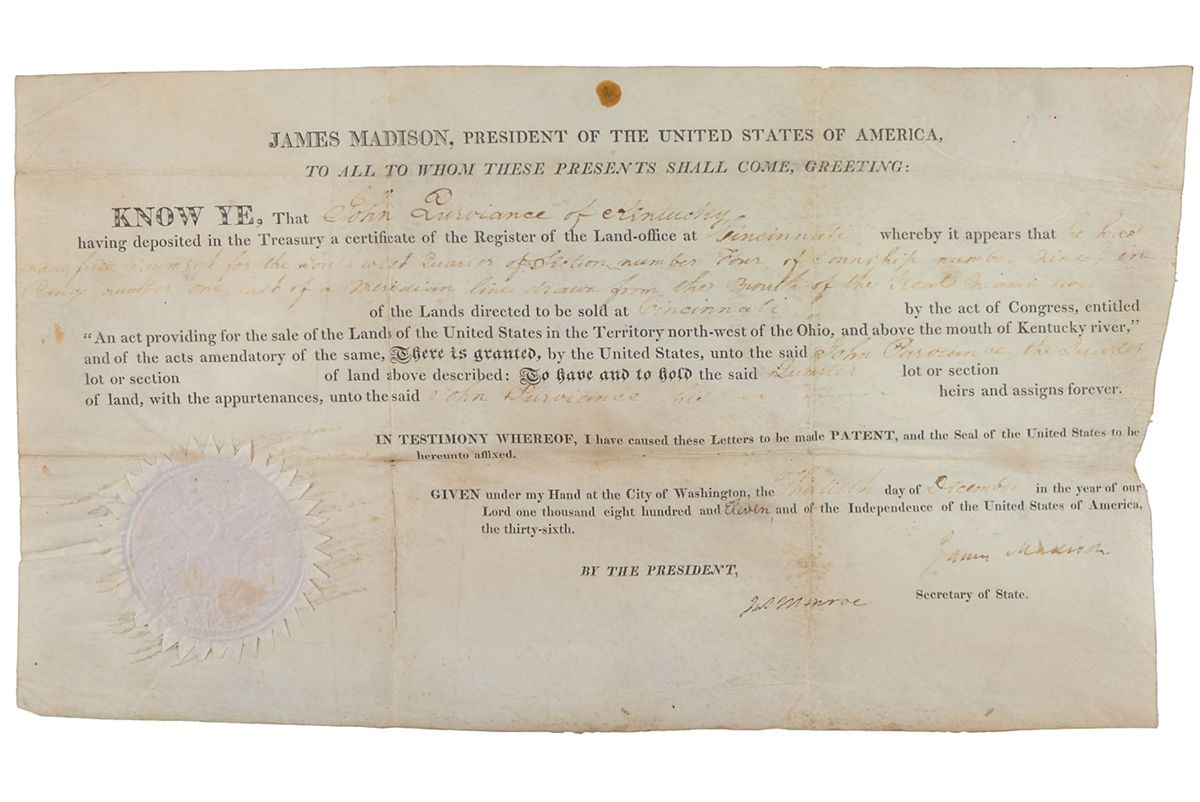 JAMES MADISON, PRESIDENT OF THE UNITED STATES OF AMERICA,
TO ALL TO WHOM THESE PRESENTS SHALL COME, GREETING:
KNOW YE, That John Purviance of Kentucky
having deposited in the Treasury a certificate of the Register of the Land-office at Cincinnati whereby it appears that he has
made full payment for the Quarter of Section number Four, of Township number Nine, in
Range number one, East of a Meridian line drawn from the Mouth of the Great Miami river
of the Lands directed to be sold at Cincinnati by the act of Congress, entitled
“An act providing for the sale of the Lands of the United States in the Territory north-west of the Ohio, and above the mouth of Kentucky river,”
and of the acts amendatory of the same, There is granted, by the United States, unto the said John Purviance, the Quarter
lot or section of land above described: To have and to hold the said Quarter lot or section
of land, with the appurtenances, unto the said John Purviance his heirs and assigns forever.
IN TESTIMONY WHEREOF, I have caused these Letters to be made PATENT, and the Seal of the United States to be
hereunto affixed.
GIVEN under my Hand at the City of Washington, the Thirtieth day of December in the year of our
Lord one thousand eight hundred and Eleven and of the Independence of the United States of America,
the thirty-sixth.
James Madison
BY THE PRESIDENT,
Jas Monroe Secretary of State.